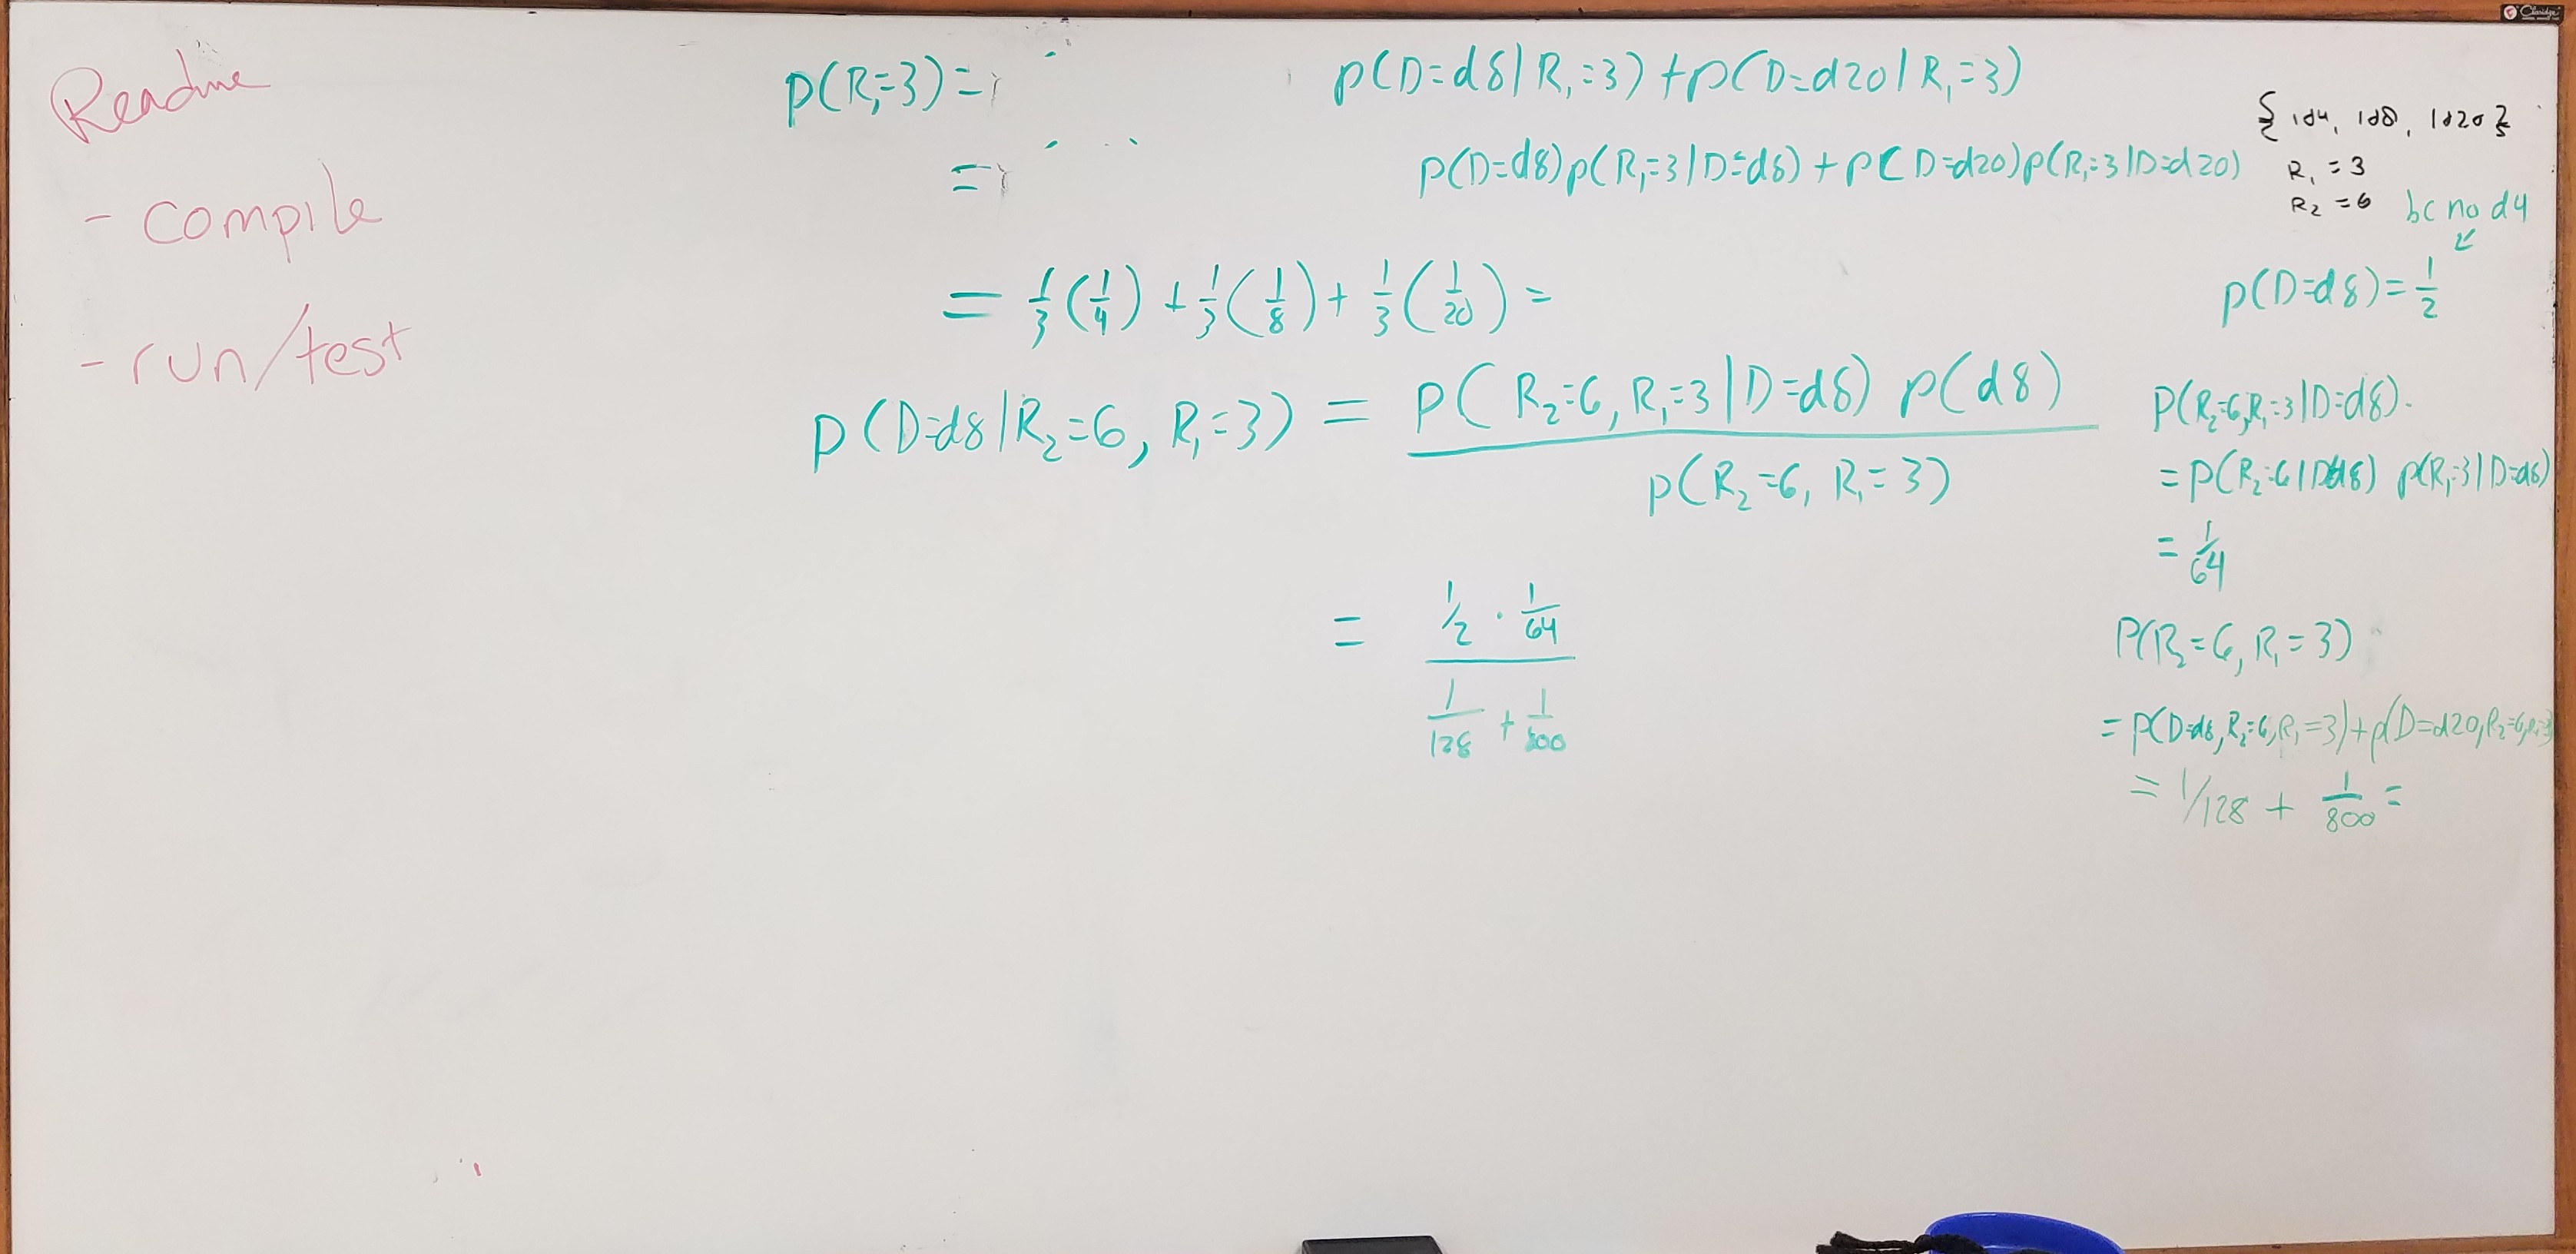 Readme
- compile
- run/test
p(R₁=3) =
=
p(D=d8|R₁=3) + p(D=d20|R₁=3)
p(D=d8)p(R₁=3|D=d8) + p(D=d20)p(R₁=3|D=d20)
= 1/3 (1/4) + 1/3 (1/8) + 1/3 (1/20) =
p(D=d8|R₂=6, R₁=3) = p(R₂=6, R₁=3|D=d8) p(d8)
p(R₂=6, R₁=3)
= 1/2 · 1/64
1/128 + 1/800
{1d4, 1d8, 1d20}
R₁ = 3
R₂ = 6
bc no d4
p(D=d8) = 1/2
P(R₂=6, R₁=3|D=d8)
= P(R₂=6|D=d8) p(R₁=3|D=d8)
= 1/64
P(R₂=6, R₁=3)
= P(D=d8, R₂=6, R₁=3) + p(D=d20, R₂=6, R₁=3)
= 1/128 + 1/800 =
Claridge